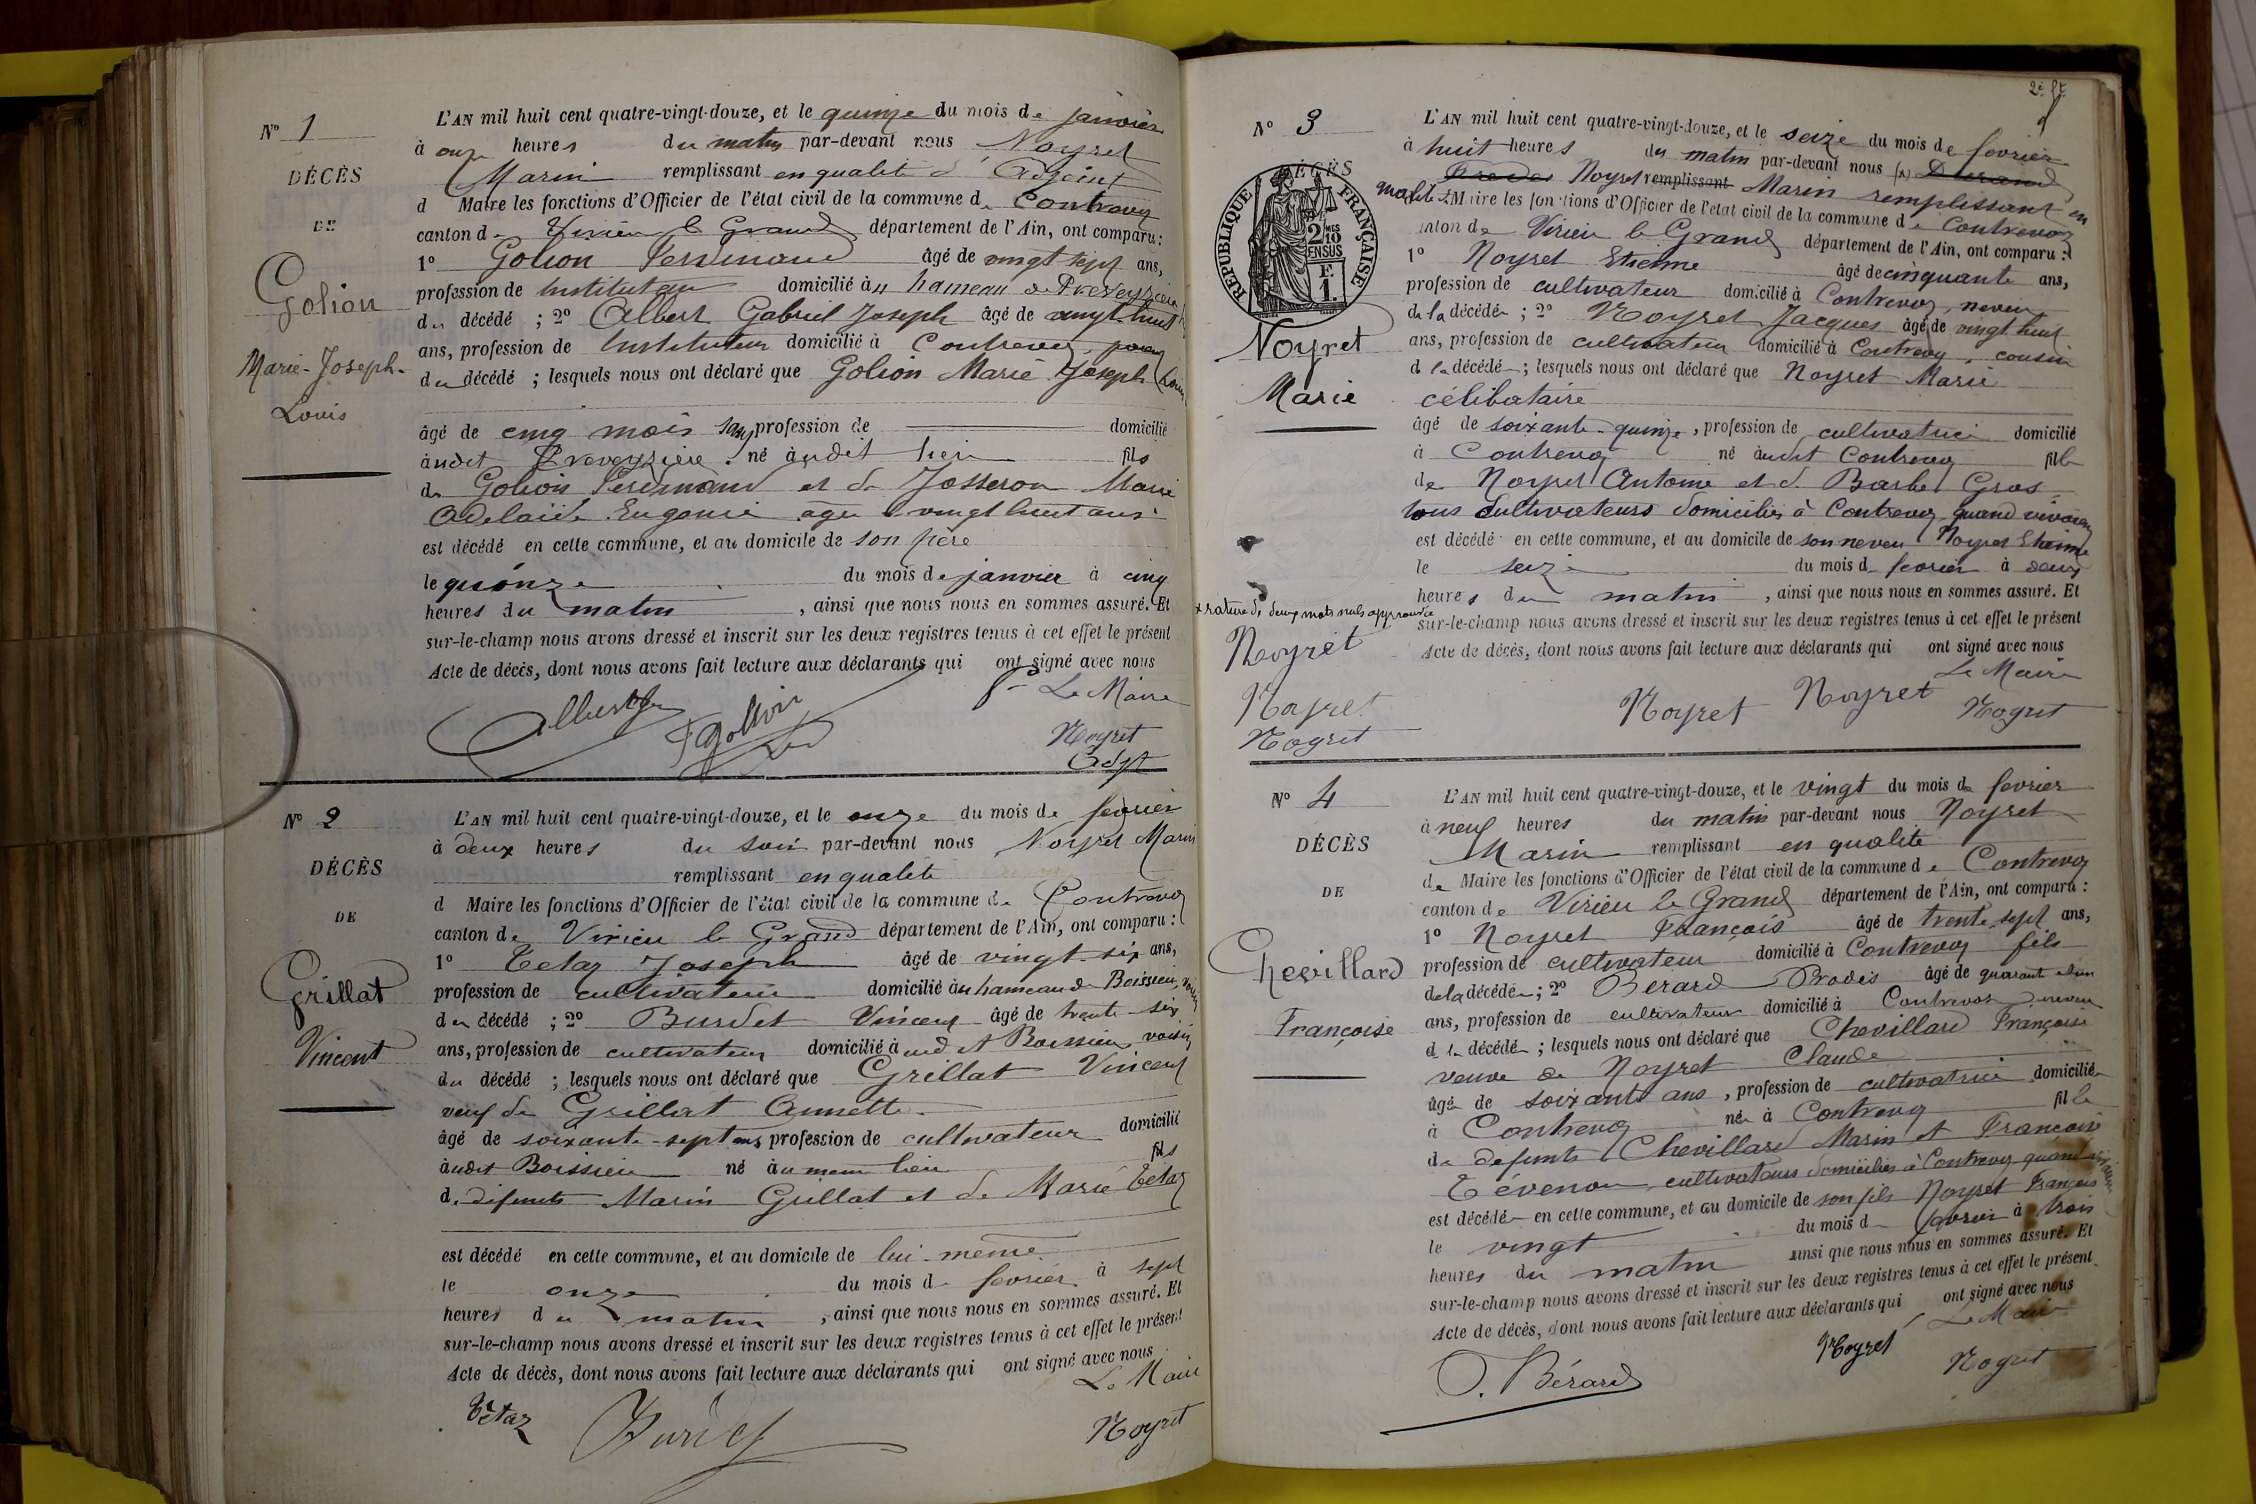 N° 1
DÉCÈS
DE
Golion
Marie-Joseph-
Louis
L'AN mil huit cent quatre-vingt-douze, et le quinze du mois de janvier
à onze heures du matin par-devant nous Noyret
Marin remplissant en qualité d'Adjoint
d Maire les fonctions d'Officier de l'état civil de la commune de Contrevoz
canton de Virieu le Grand département de l'Ain, ont comparu :
1° Golion Ferdinand âgé de vingt sept ans,
profession de Instituteur domicilié au hameau de Preveyzieu
du décédé ; 2° Albert Gabriel Joseph âgé de vingt huit
ans, profession de Instituteur domicilié à Contrevoz
du décédé ; lesquels nous ont déclaré que Golion Marie Joseph Louis
âgé de cinq mois sans profession de domicilié
audit Preveyzieu né audit lieu fils
de Golion Ferdinand et de Josseron Marie
Adelaïde Eugenie agée vingt huit ans
est décédé en cette commune, et au domicile de son père
le quinze du mois de janvier à cinq
heures du matin, ainsi que nous nous en sommes assuré. Et
sur-le-champ nous avons dressé et inscrit sur les deux registres tenus à cet effet le présent
Acte de décès, dont nous avons fait lecture aux déclarants qui ont signé avec nous
Le Maire
Albert F Golion Noyret
Adjt
N° 2
DÉCÈS
DE
Grillat
Vincent
L'AN mil huit cent quatre-vingt-douze, et le onze du mois de fevrier
à deux heures du soir par-devant nous Noyret Marin
remplissant en qualité
d Maire les fonctions d'Officier de l'état civil de la commune de Contrevoz
canton de Virieu le Grand département de l'Ain, ont comparu :
1° Tetaz Joseph âgé de vingt-six ans,
profession de cultivateur domicilié au hameau de Boissieu, voisin
du décédé ; 2° Burdet Vincent âgé de trente-six
ans, profession de cultivateur domicilié à Boissieu voisin
du décédé ; lesquels nous ont déclaré que Grillat Vincent
veuf de Grillat Annette
âgé de soixante-sept ans profession de cultivateur domicilié
audit Boissieu né au meme lieu fils
de defunts Marin Grillat et de Marie Tetaz
est décédé en cette commune, et au domicile de lui-meme
le onze du mois de fevrier à sept
heures du matin, ainsi que nous nous en sommes assuré. Et
sur-le-champ nous avons dressé et inscrit sur les deux registres tenus à cet effet le présent
Acte de décès, dont nous avons fait lecture aux déclarants qui ont signé avec nous
Le Maire
Tétaz Burdet Noyret
2e ft
N° 3
DÉCÈS
RÉPUBLIQUE FRANÇAISE
Noyret
Marie
L'AN mil huit cent quatre-vingt-douze, et le seize du mois de fevrier
à huit heures du matin par-devant nous (x)
Noyret remplissant Marin remplissant en
qualité de Maire les fonctions d'Officier de l'état civil de la commune de Contrevoz
canton de Virieu le Grand département de l'Ain, ont comparu :
1° Noyret Etienne âgé de cinquante ans,
profession de cultivateur domicilié à Contrevoz, neveu
de la décédée ; 2° Noyret Jacques âgé de vingt huit
ans, profession de cultivateur domicilié à Contrevoz, cousin
d la décédée ; lesquels nous ont déclaré que Noyret Marie
célibataire
âgé de soixante-quinze, profession de cultivatrice domicilié
à Contrevoz né audit Contrevoz fille
de Noyret Antoine et de Barbe Gros
tous cultivateurs domiciliés à Contrevoz quand vivaient
est décédé en cette commune, et au domicile de son neveu Noyret Etienne
le seize du mois de fevrier à deux
heures du matin, ainsi que nous nous en sommes assuré. Et
sur-le-champ nous avons dressé et inscrit sur les deux registres tenus à cet effet le présent
Acte de décès, dont nous avons fait lecture aux déclarants qui ont signé avec nous
Le Maire
x rature de deux mots nuls approuvée
Noyret
Noyret
Noyret
Noyret Noyret Noyret
N° 4
DÉCÈS
DE
Chevillard
Françoise
L'AN mil huit cent quatre-vingt-douze, et le vingt du mois de fevrier
à neuf heures du matin par-devant nous Noyret
Marin remplissant en qualité
de Maire les fonctions d'Officier de l'état civil de la commune de Contrevoz
canton de Virieu le Grand département de l'Ain, ont comparu :
1° Noyret François âgé de trente sept ans,
profession de cultivateur domicilié à Contrevoz fils
de la décédée ; 2° Bérard âgé de quarant et un
ans, profession de cultivateur domicilié à Contrevoz neveu
d la décédée ; lesquels nous ont déclaré que Chevillard Françoise
veuve de Noyret Claude
âgé de soixante ans, profession de cultivatrice domiciliée
à Contrevoz née à Contrevoz fille
de defunts Chevillard Marin et Françoise
Tévenon cultivateurs domiciliés à Contrevoz quand vivaient
est décédée en cette commune, et au domicile de son fils Noyret François
le vingt du mois de fevrier à trois
heures du matin ainsi que nous nous en sommes assuré. Et
sur-le-champ nous avons dressé et inscrit sur les deux registres tenus à cet effet le présent
Acte de décès, dont nous avons fait lecture aux déclarants qui ont signé avec nous
Le Maire
Bérard Noyret Noyret